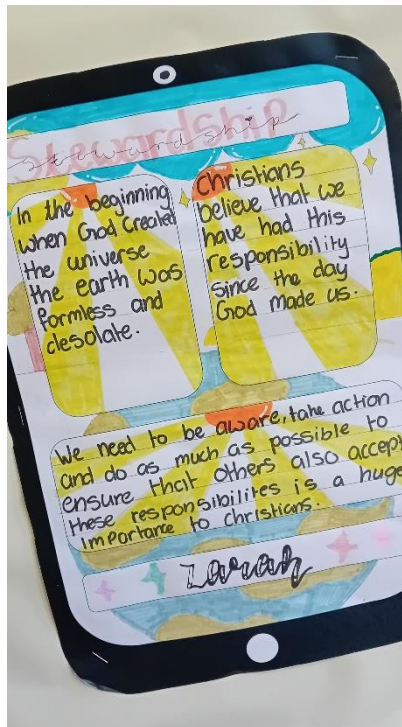 Stewardship
stewardship
In the beginning
when God created
the universe
the earth was
formless and
desolate.
Christians
believe that we
have had this
responsibility
since the day
God made us.
We need to be aware, take action
and do as much as possible to
ensure that others also accept
these responsibilites is a huge
importance to christians.
Zarah